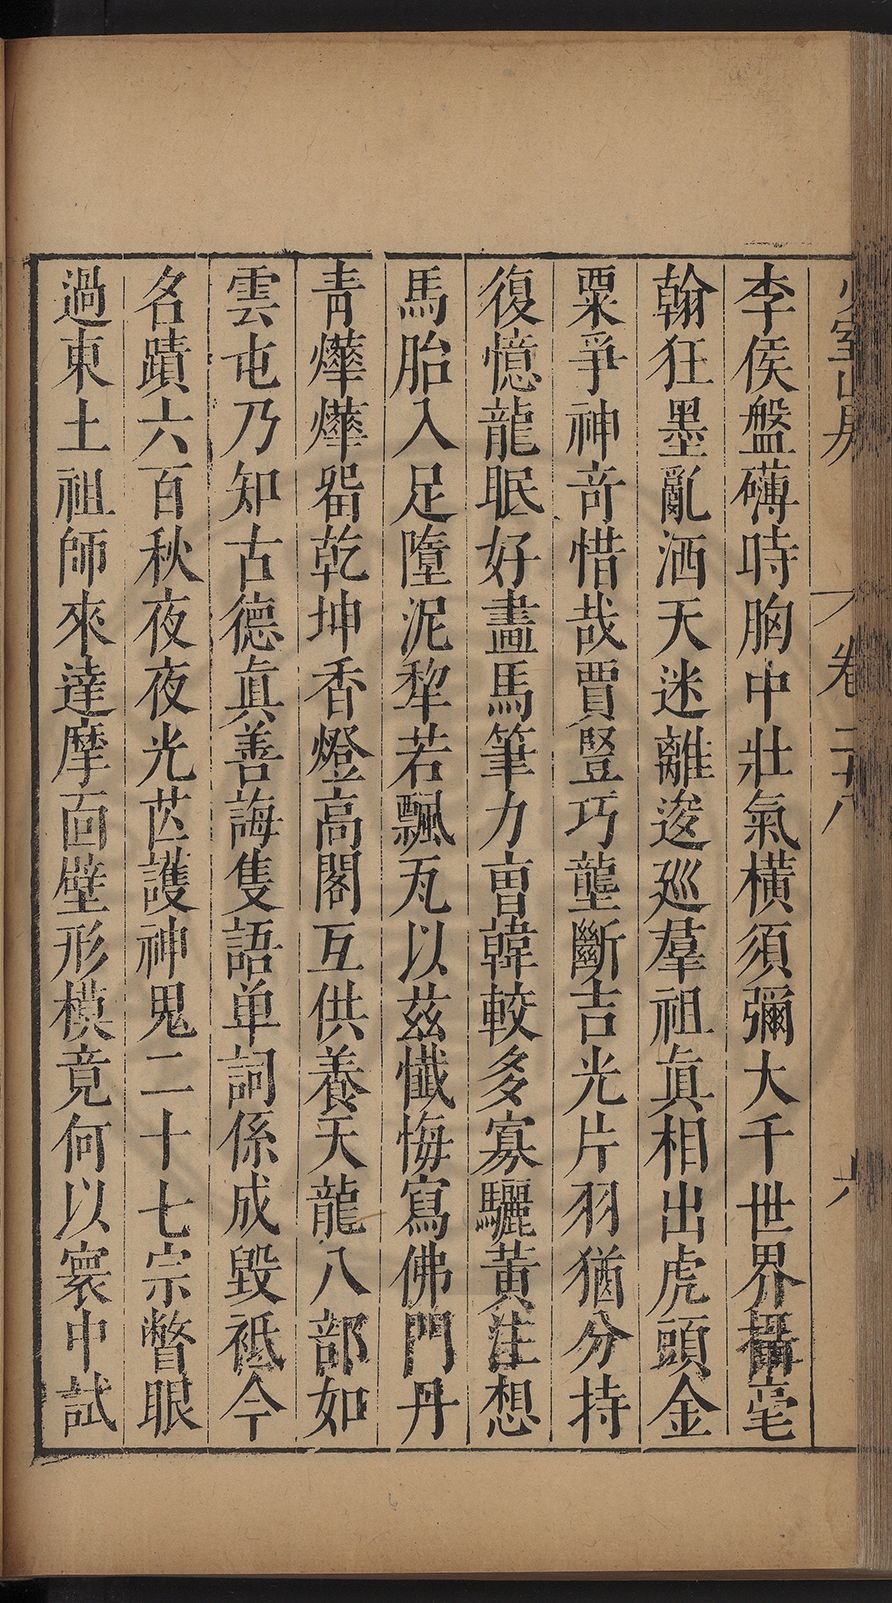 少室山房 卷二十八 六
李侯盤礴時胸中壯氣橫須彌大千世界攝毫
翰狂墨亂洒天迷離逡廵羣祖眞相出虎頭金
粟爭神奇惜哉賈豎巧壟斷吉光片羽猶分持
復憶龍眠好畫馬筆力曺韓較多寡驪黃注想
馬胎入足墮泥犂若飄瓦以茲懺悔寫佛門丹
青燁燁畱乾坤香燈高閣互供養天龍八部如
雲屯乃知古德眞善誨隻語单詞係成毀祗今
名蹟六百秋夜夜光芒護神鬼二十七宗瞥眼
過東土祖師來達摩面壁形模竟何以寰中試